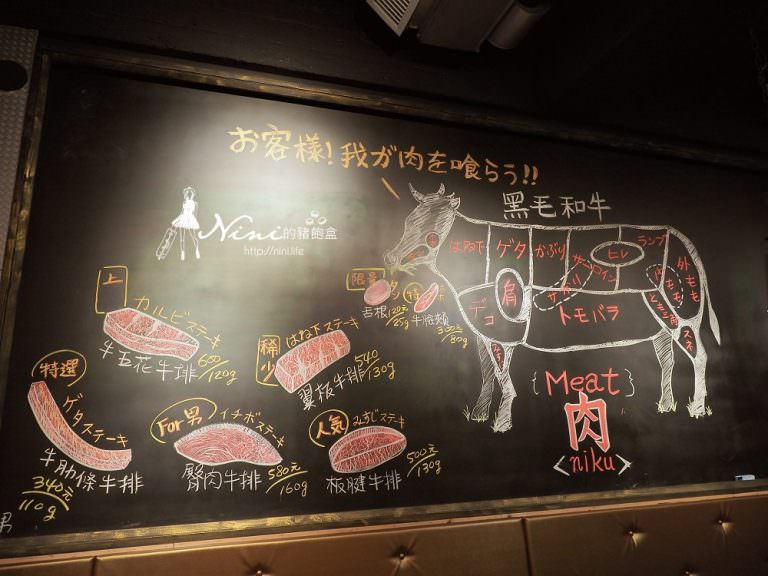 お客様!我が肉を喰らう!!
黑毛和牛
Nini的豬飽盒
http://nini.life
はね下
ゲタ
かぶり
サーロイン
ヒレ
ランプ
外もも
内もも
とも三角
サガリ
肩
トモバラ
スネ
限量
舌根
120元/25g
特
牛臉頰
80g
上
カルビステーキ
牛五花牛排
600/120g
稀少
はね下ステーキ
翼板牛排
540/130g
特選
ゲタステーキ
牛肋條牛排
340元/110g
For男
イチボステーキ
臀肉牛排
580元/160g
人気
みすじステーキ
板腱牛排
500元/130g
{Meat}
肉
<niku>
男